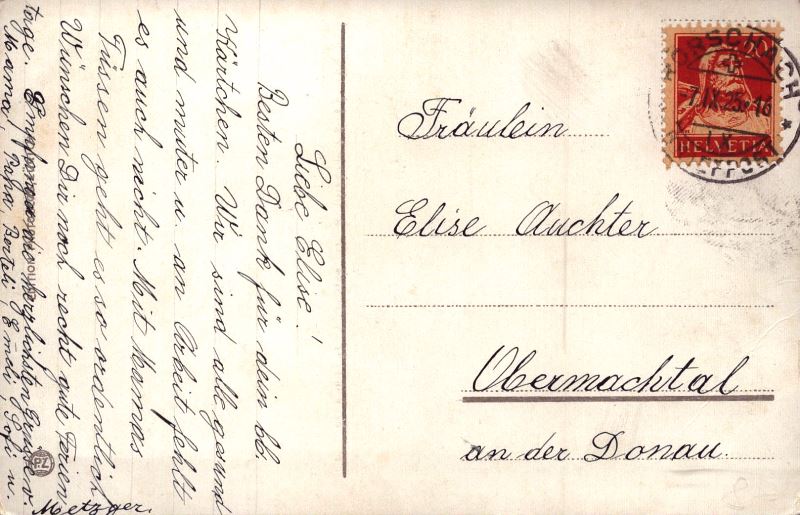 Liebe Elise!
Besten Dank für dein lb.
Kärtchen. Wir sind alle gesund
und munter u. an Arbeit fehlt
es auch nicht. Mit Mamas
Füssen geht es so ordentlich
Wünschen Dir noch recht gute Ferien
tage. die herzlichsten Grüsse v.
Mama, Papa, Berteli, Emeli, Sofi u.
Metzger.
Fräulein
Elise Auchter
Obermachtal
an der Donau.
RORSCHACH
7.IX.25.-16
20
HELVETIA